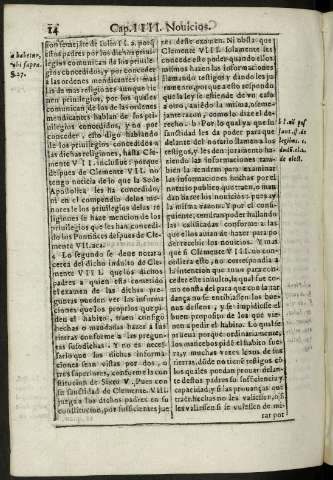 14 Cap. IIII. Novicios.
a habetur,
vbi supra.
§. 27.
son semejãte de Iulio II. a. porq̃
estos padres por los dichos privi
legios comunican de los privile
gios concedidos, y por conceder
a las demas religiones: mas las
de mas religiones aunque tie-
nen privilegios, por los quales
comunican de los de las ordenes
mendicantes hablan de los pri-
vilegios concedidos, y no por
conceder, esto digo hablando
de los privilegios concedidos a
las dichas religiones, hasta Cle-
mente VII. inclusive: porque
despues de Clemente VII. no
tengo noticia de lo que la Sede
Apostolica les ha concedido,
ni en el compendio delos me-
nores de los privilegios delas re
ligiones se haze mencion de los
privilegios que les han concedi-
do los Pontifices despues de Cle-
mente VII. acà.
4 Lo segundo se deve notar a
cerca del dicho indulto de Cle-
mente VIII. que los dichos
padres a quien està cometido
el examen de las dichas pre-
guntas pueden ver las informa
ciones que los proprios que pi-
den el habito, traen consigo
hechas o mandadas hazer a sus
tierras conforme a las pregun-
tas susodichas. Y no es neces-
sario que las dichas informa
ciones sean vistas por dos, o
tres superiores, conforme la con
stitucion de Sixto V. Pues con
ser sanctidad de Clemente. VIII.
juzga a los dichos padres en su
constitucion, por sufficientes jue
zes deste examen. Ni obsta que
Clemente VIII. solamente les
concede este poder quando ellos
mismos hazen las informaciones
tomando testigos y dando les jura
mento, porque a esto respondo
que la ley se estiende de un ca-
so a otro, aviendo la misma, o seme-
jante razon, como lo dize el de-
recho. b Por lo qual ya que su
sanctidad les da poder para que
delante del notario llamen a los
testigos, y les den juramento ha-
ziendo las informaciones tam-
bien la tendran para examinar
las informaciones hechas por el
notario publico que traen, o man
da hazer en sus tierras, porque ay
la misma razon. Y por el consi-
guiente, tendran poder hallando
las calificadas conforme a lo
que ellos avian de hazer para po-
der recebir los novicios. Y mas
que si Clemente VIII. no con-
cediera esto, no correspondia
a la intencion que avia para con-
ceder este indulto, la qual fue co-
mo consta del para que con la tar
dança no se entibiassen los bue-
nos desseos, y se impidiesse el
buen proposito de los que vie-
nen a pedir el habito. Lo qual se
impidiria porque ordinariamente
los mancebos pidẽ el habito fue-
ra, y muchas vezes lexos de sus
tierras, dõde no tiene testigos cõ
los quales puedan provar delan-
te destos padres su sufficiencia y
capacidad, y si las provanças que
traẽ hechas no les valiessen, o si
les valiessen si se uviessen de mi-
rar por